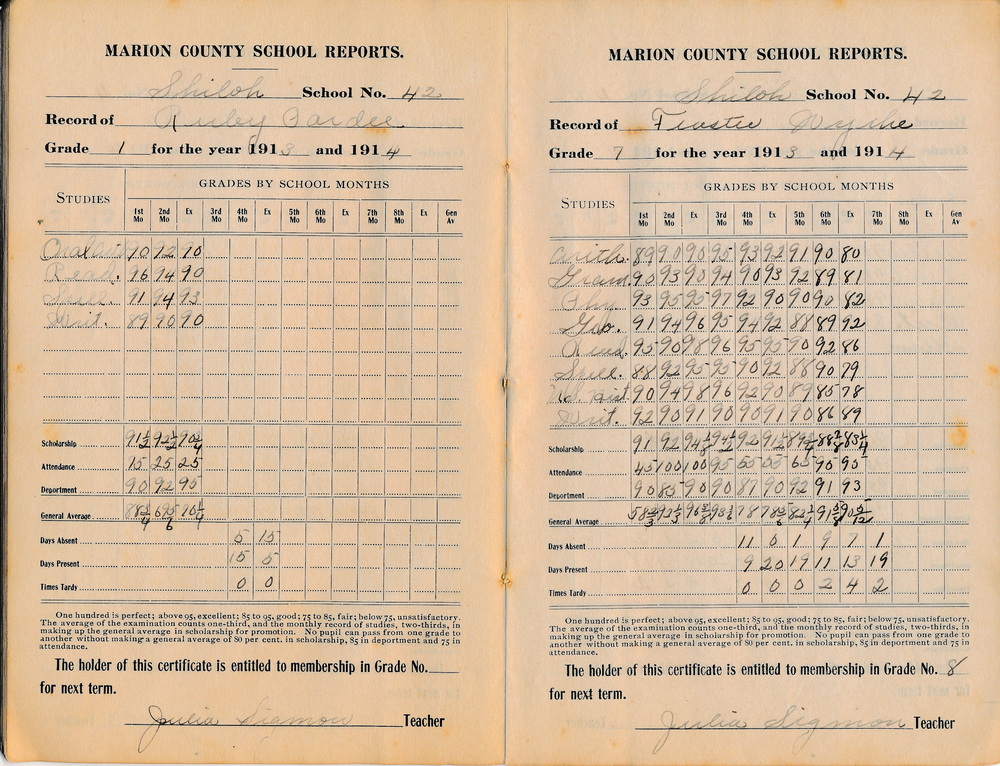 MARION COUNTY SCHOOL REPORTS.
Shiloh School No. 42
Record of Ruby Pardee
Grade 1 for the year 1913 and 1914
STUDIES GRADES BY SCHOOL MONTHS
1st Mo 2nd Mo Ex 3rd Mo 4th Mo Ex 5th Mo 6th Mo Ex 7th Mo 8th Mo Ex Gen Av
90 92 90
Read. 96 94 90
Spell. 91 94 93
Writ. 89 90 90
Scholarship 91½ 92½ 90¾
Attendance 15 25 25
Department 90 92 95
General Average
Days Absent 5 15
Days Present 15 5
Times Tardy 0 0
One hundred is perfect; above 95, excellent; 85 to 95, good; 75 to 85, fair; below 75, unsatisfactory.
The average of the examination counts one-third, and the monthly record of studies, two-thirds, in
making up the general average in scholarship for promotion. No pupil can pass from one grade to
another without making a general average of 80 per cent. in scholarship, 85 in department and 75 in
attendance.
The holder of this certificate is entitled to membership in Grade No.
for next term.
Julia Sigmon Teacher
MARION COUNTY SCHOOL REPORTS.
Shiloh School No. 42
Record of
Grade 7 for the year 1913 and 1914
STUDIES GRADES BY SCHOOL MONTHS
1st Mo 2nd Mo Ex 3rd Mo 4th Mo Ex 5th Mo 6th Mo Ex 7th Mo 8th Mo Ex Gen Av
Arith. 89 90 90 95 93 92 91 90 80
Gram. 90 93 90 94 90 93 92 89 81
Phy. 93 95 95 97 92 90 90 90 82
Geo. 91 94 96 95 94 92 88 89 92
Read. 95 90 98 96 95 95 90 92 86
Spell. 88 92 95 95 90 92 88 90 79
U.S. Hist 90 94 98 96 92 90 89 85 78
Writ. 92 90 91 90 90 91 90 86 89
Scholarship 91 92
Attendance 45 100 100 95 55 65 90 95
Department 90 85 90 90 87 90 92 91 93
General Average
Days Absent 11 0 1 9 7 1
Days Present 9 20 19 11 13 19
Times Tardy 0 0 0 2 4 2
One hundred is perfect; above 95, excellent; 85 to 95, good; 75 to 85, fair; below 75, unsatisfactory.
The average of the examination counts one-third, and the monthly record of studies, two-thirds, in
making up the general average in scholarship for promotion. No pupil can pass from one grade to
another without making a general average of 80 per cent. in scholarship, 85 in department and 75 in
attendance.
The holder of this certificate is entitled to membership in Grade No. 8
for next term.
Julia Sigmon Teacher